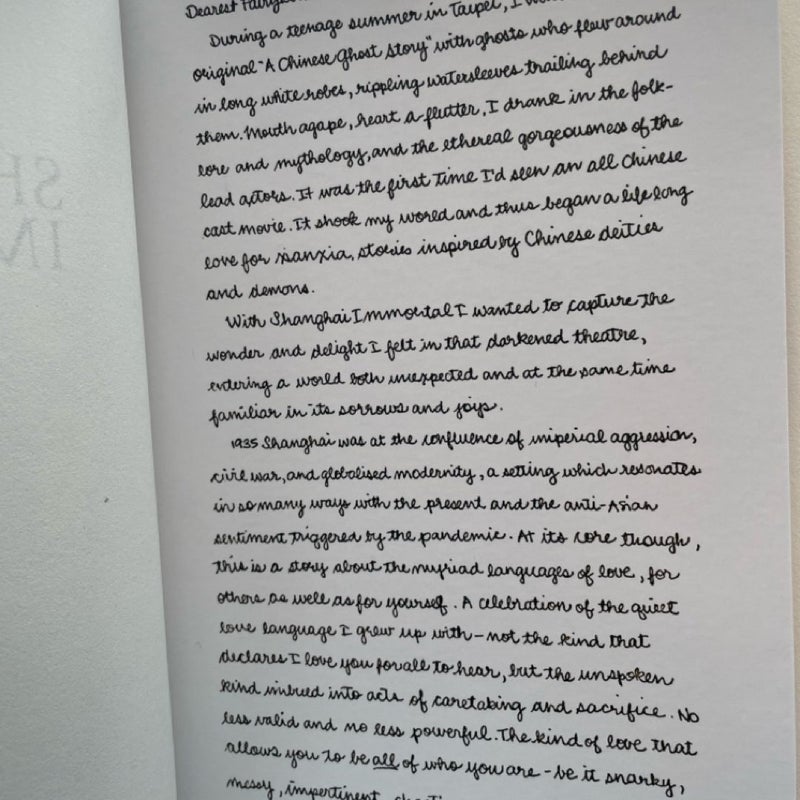 Dearest
During a teenage summer in Taipei, I
original "A Chinese Ghost Story" with ghosts who flew around
in long white robes, rippling watersleeves trailing behind
them. Mouth agape, heart a-flutter, I drank in the folk-
lore and mythology, and the ethereal gorgeousness of the
lead actors. It was the first time I'd seen an all Chinese
cast movie. It shook my world and thus began a lifelong
love for xianxia, stories inspired by Chinese deities
and demons.
With Shanghai Immortal I wanted to capture the
wonder and delight I felt in that darkened theatre,
entering a world both unexpected and at the same time
familiar in its sorrows and joys.
1935 Shanghai was at the confluence of imperial aggression,
civil war, and globalised modernity, a setting which resonates
in so many ways with the present and the anti-Asian
sentiment triggered by the pandemic. At its core though,
this is a story about the myriad languages of love, for
others as well as for yourself. A celebration of the quiet
love language I grew up with - not the kind that
declares I love you for all to hear, but the unspoken
kind imbued into acts of caretaking and sacrifice. No
less valid and no less powerful. The kind of love that
allows you to be all of who you are - be it snarky,
messy, impertinent,
SH
IN